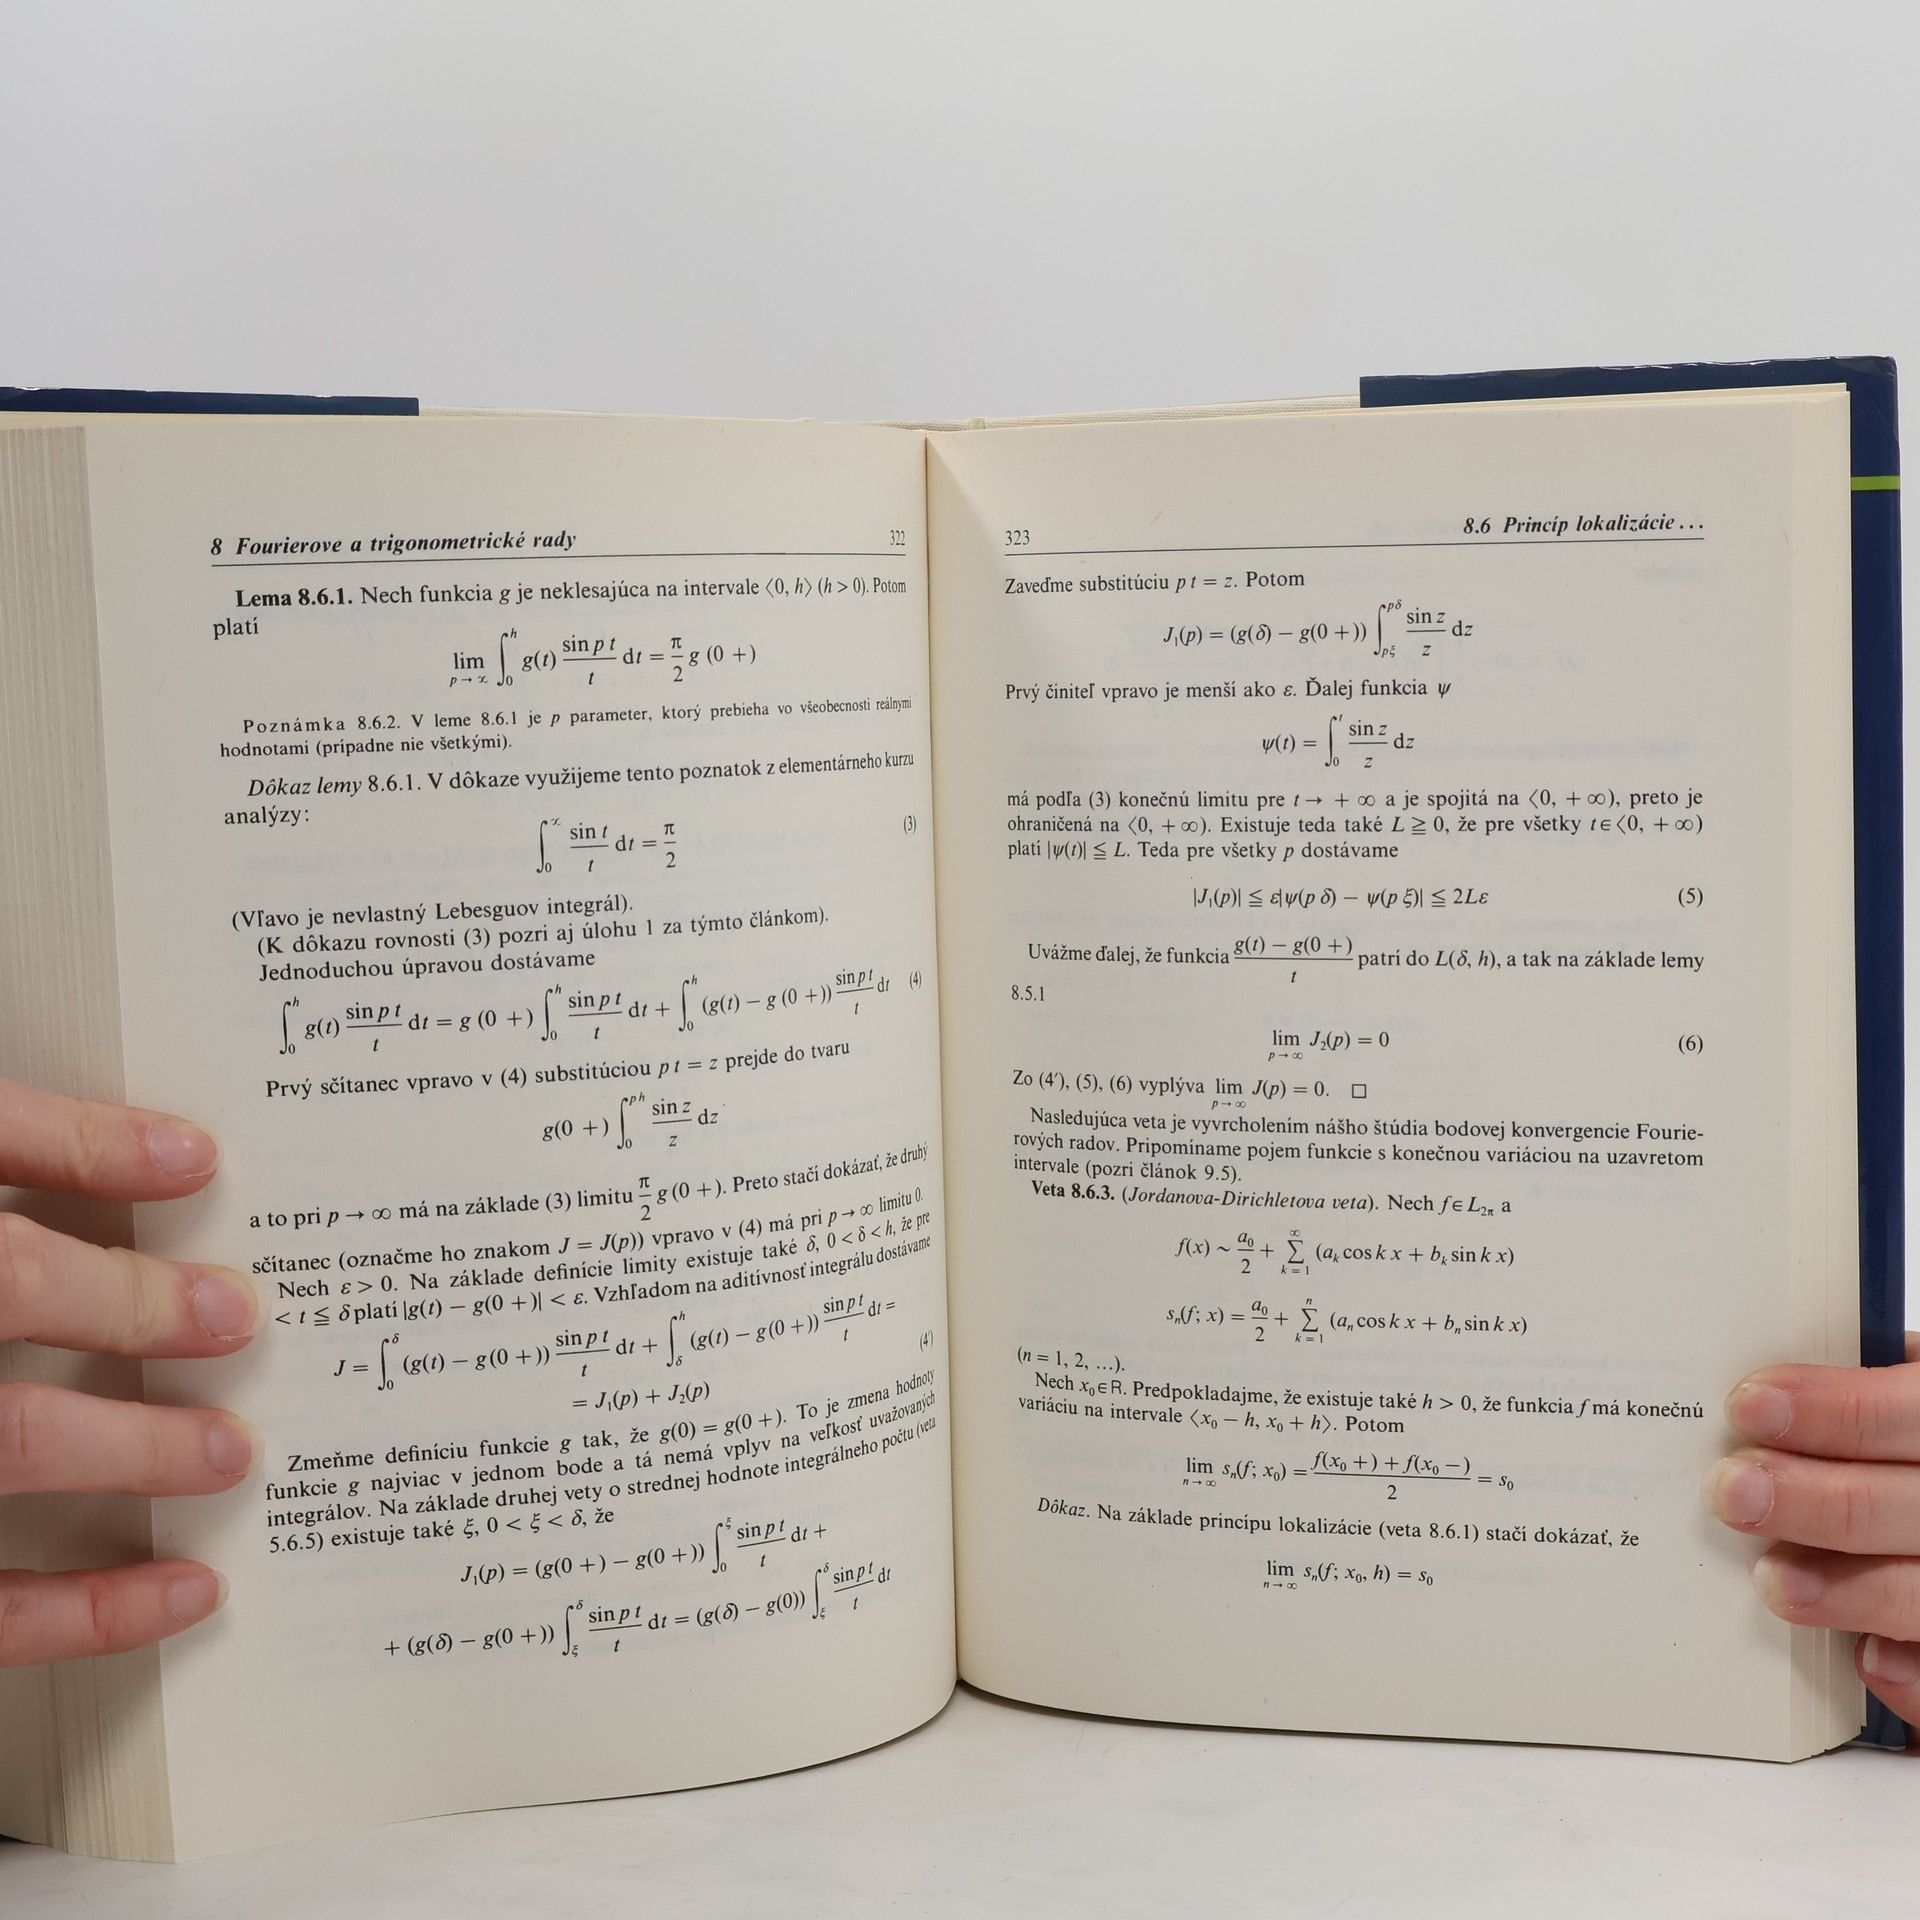 8 Fourierove a trigonometrické rady 322
Lema 8.6.1. Nech funkcia g je neklesajúca na intervale ⟨0, h⟩ (h > 0). Potom
platí
lim_{p → ∞} ∫_0^h g(t) (sin p t)/t dt = π/2 g (0 +)
Poznámka 8.6.2. V leme 8.6.1 je p parameter, ktorý prebieha vo všeobecnosti reálnymi
hodnotami (prípadne nie všetkými).
Dôkaz lemy 8.6.1. V dôkaze využijeme tento poznatok z elementárneho kurzu
analýzy:
∫_0^∞ (sin t)/t dt = π/2 (3)
(Vľavo je nevlastný Lebesguov integrál).
(K dôkazu rovnosti (3) pozri aj úlohu 1 za týmto článkom).
Jednoduchou úpravou dostávame
∫_0^h g(t) (sin p t)/t dt = g (0 +) ∫_0^h (sin p t)/t dt + ∫_0^h (g(t) − g (0 +)) (sin p t)/t dt (4)
Prvý sčítanec vpravo v (4) substitúciou p t = z prejde do tvaru
g(0 +) ∫_0^{ph} (sin z)/z dz
a to pri p → ∞ má na základe (3) limitu π/2 g (0 +). Preto stačí dokázať, že druhý
sčítanec (označme ho znakom J = J(p)) vpravo v (4) má pri p → ∞ limitu 0.
Nech ε > 0. Na základe definície limity existuje také δ, 0 < δ < h, že pre
< t ≦ δ platí |g(t) − g(0 +)| < ε. Vzhľadom na aditívnosť integrálu dostávame
J = ∫_0^δ (g(t) − g(0 +)) (sin p t)/t dt + ∫_δ^h (g(t) − g(0 +)) (sin p t)/t dt =
= J₁(p) + J₂(p) (4')
Zmeňme definíciu funkcie g tak, že g(0) = g(0 +). To je zmena hodnoty
funkcie g najviac v jednom bode a tá nemá vplyv na veľkosť uvažovaných
integrálov. Na základe druhej vety o strednej hodnote integrálneho počtu (veta
5.6.5) existuje také ξ, 0 < ξ < δ, že
J₁(p) = (g(0 +) − g(0 +)) ∫_0^ξ (sin p t)/t dt +
+ (g(δ) − g(0 +)) ∫_ξ^δ (sin p t)/t dt = (g(δ) − g(0)) ∫_ξ^δ (sin p t)/t dt
323 8.6 Princíp lokalizácie...
Zaveďme substitúciu p t = z. Potom
J₁(p) = (g(δ) − g(0 +)) ∫_{pξ}^{pδ} (sin z)/z dz
Prvý činiteľ vpravo je menší ako ε. Ďalej funkcia ψ
ψ(t) = ∫_0^t (sin z)/z dz
má podľa (3) konečnú limitu pre t → + ∞ a je spojitá na ⟨0, + ∞), preto je
ohraničená na ⟨0, + ∞). Existuje teda také L ≧ 0, že pre všetky t ∈ ⟨0, + ∞)
platí |ψ(t)| ≦ L. Teda pre všetky p dostávame
|J₁(p)| ≦ ε|ψ(p δ) − ψ(p ξ)| ≦ 2Lε (5)
Uvážme ďalej, že funkcia (g(t) − g(0 +))/t patrí do L(δ, h), a tak na základe lemy
8.5.1
lim_{p → ∞} J₂(p) = 0 (6)
Zo (4'), (5), (6) vyplýva lim_{p → ∞} J(p) = 0. □
Nasledujúca veta je vyvrcholením nášho štúdia bodovej konvergencie Fourie-
rových radov. Pripomíname pojem funkcie s konečnou variáciou na uzavretom
intervale (pozri článok 9.5).
Veta 8.6.3. (Jordanova-Dirichletova veta). Nech f ∈ L_{2π} a
f(x) ~ a₀/2 + ∑_{k = 1}^∞ (a_k cos k x + b_k sin k x)
s_n(f; x) = a₀/2 + ∑_{k = 1}^n (a_n cos k x + b_n sin k x)
(n = 1, 2, ...).
Nech x₀ ∈ R. Predpokladajme, že existuje také h > 0, že funkcia f má konečnú
variáciu na intervale ⟨x₀ − h, x₀ + h⟩. Potom
lim_{n → ∞} s_n(f; x₀) = (f(x₀ +) + f(x₀ −))/2 = s₀
Dôkaz. Na základe princípu lokalizácie (veta 8.6.1) stačí dokázať, že
lim_{n → ∞} s_n(f; x₀, h) = s₀